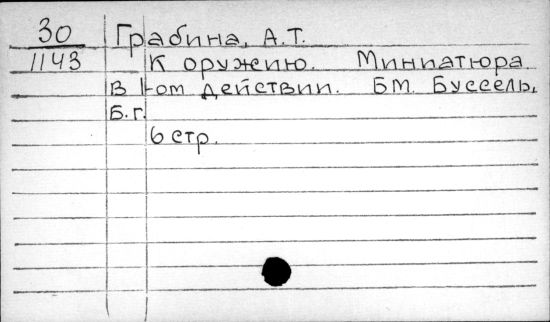 30 Грабина, А.Т.
1143 К оружию. Миниатюра
в 1-ом действии. БМ. Буссель,
Б.г.
6 стр.